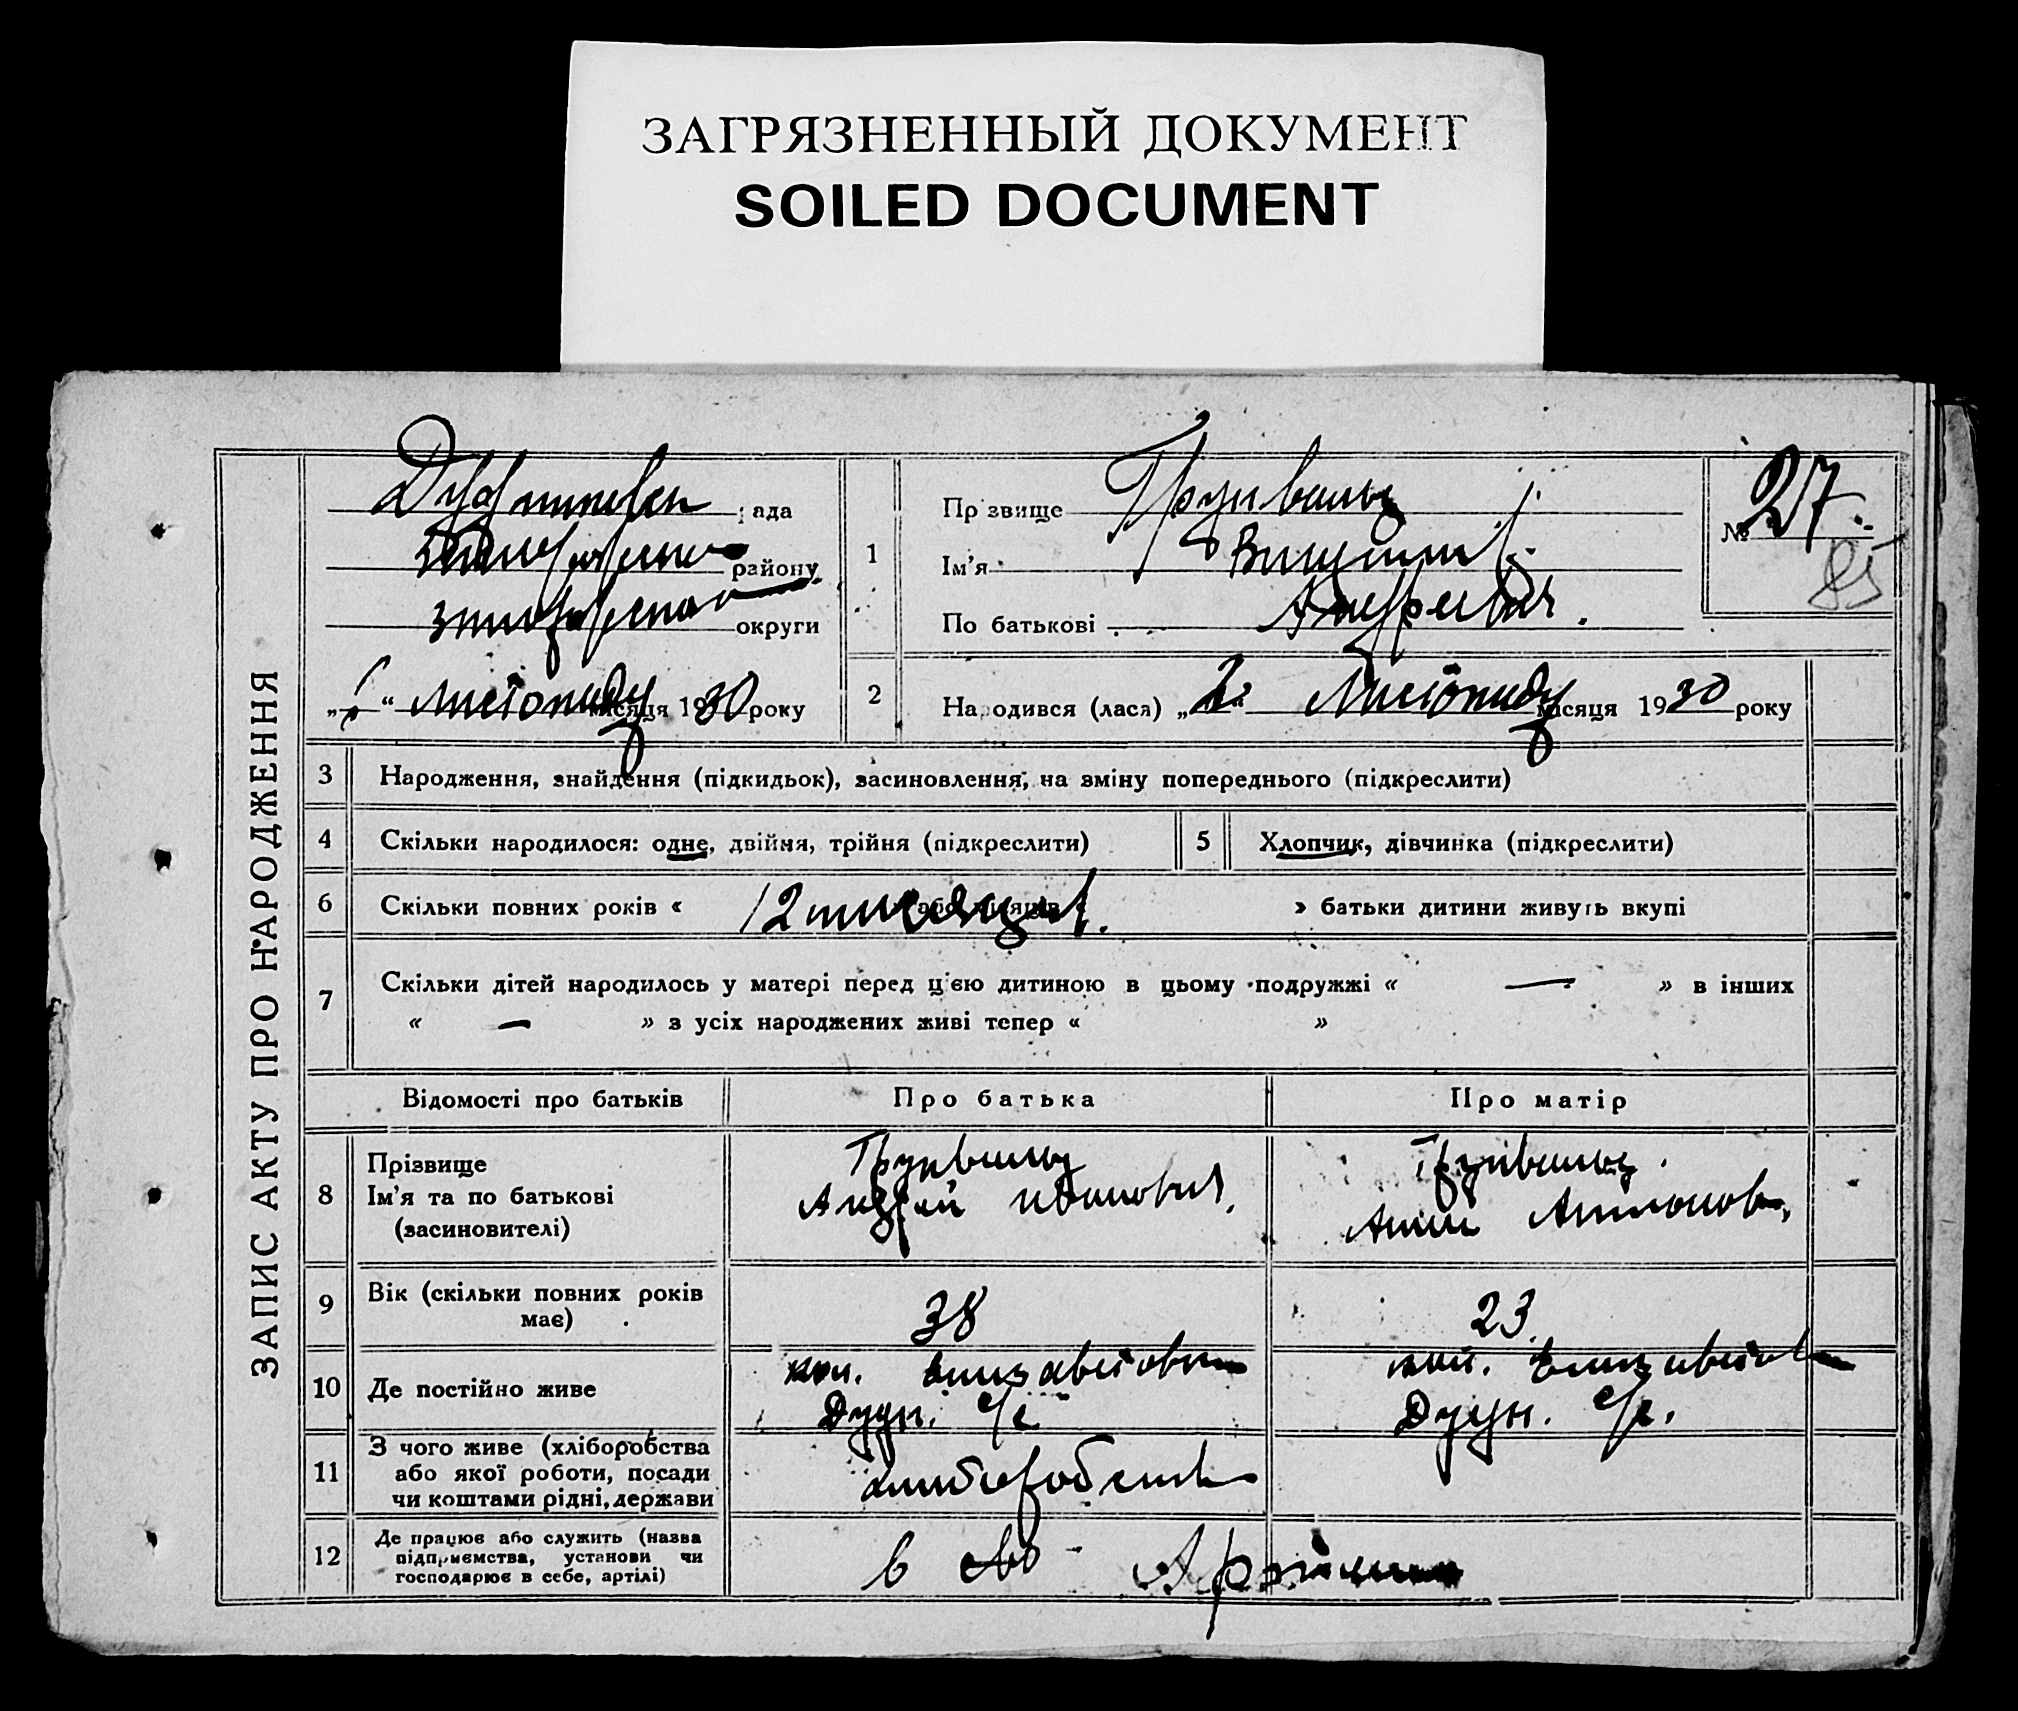 ЗАГРЯЗНЕННЫЙ ДОКУМЕНТ
SOILED DOCUMENT
ЗАПИС АКТУ ПРО НАРОДЖЕННЯ
рада
району
округи
„ “ Листопаду місяця 1930 року
1
Прізвище Грунвальд
Ім'я
По батькові Андреевич.
№ 27
85
2
Народився (лася) „2“ Листопаду місяця 1930 року
3 Народження, знайдення (підкидьок), засиновлення, на зміну попереднього (підкреслити)
4 Скільки народилося: одне, двійня, трійня (підкреслити)
5 Хлопчик, дівчинка (підкреслити)
6 Скільки повних років « 12 або місяців » батьки дитини живуть вкупі
7 Скільки дітей народилось у матері перед цією дитиною в цьому подружжі « — » в інших
« — » з усіх народжених живі тепер « »
Відомості про батьків Про батька Про матір
8 Прізвище Грунвальд Грунвальд.
Ім'я та по батькові Андрей Иванович, Анна Антонов,
(засиновителі)
9 Вік (скільки повних років 38 23
має)
10 Де постійно живе кол. Елизаветовка кол.
с/с с/с.
11 З чого живе (хліборобства
або якої роботи, посади
чи коштами рідні, держави
12 Де працює або служить (назва
підприємства, установи чи
господарює в себе, артілі) в